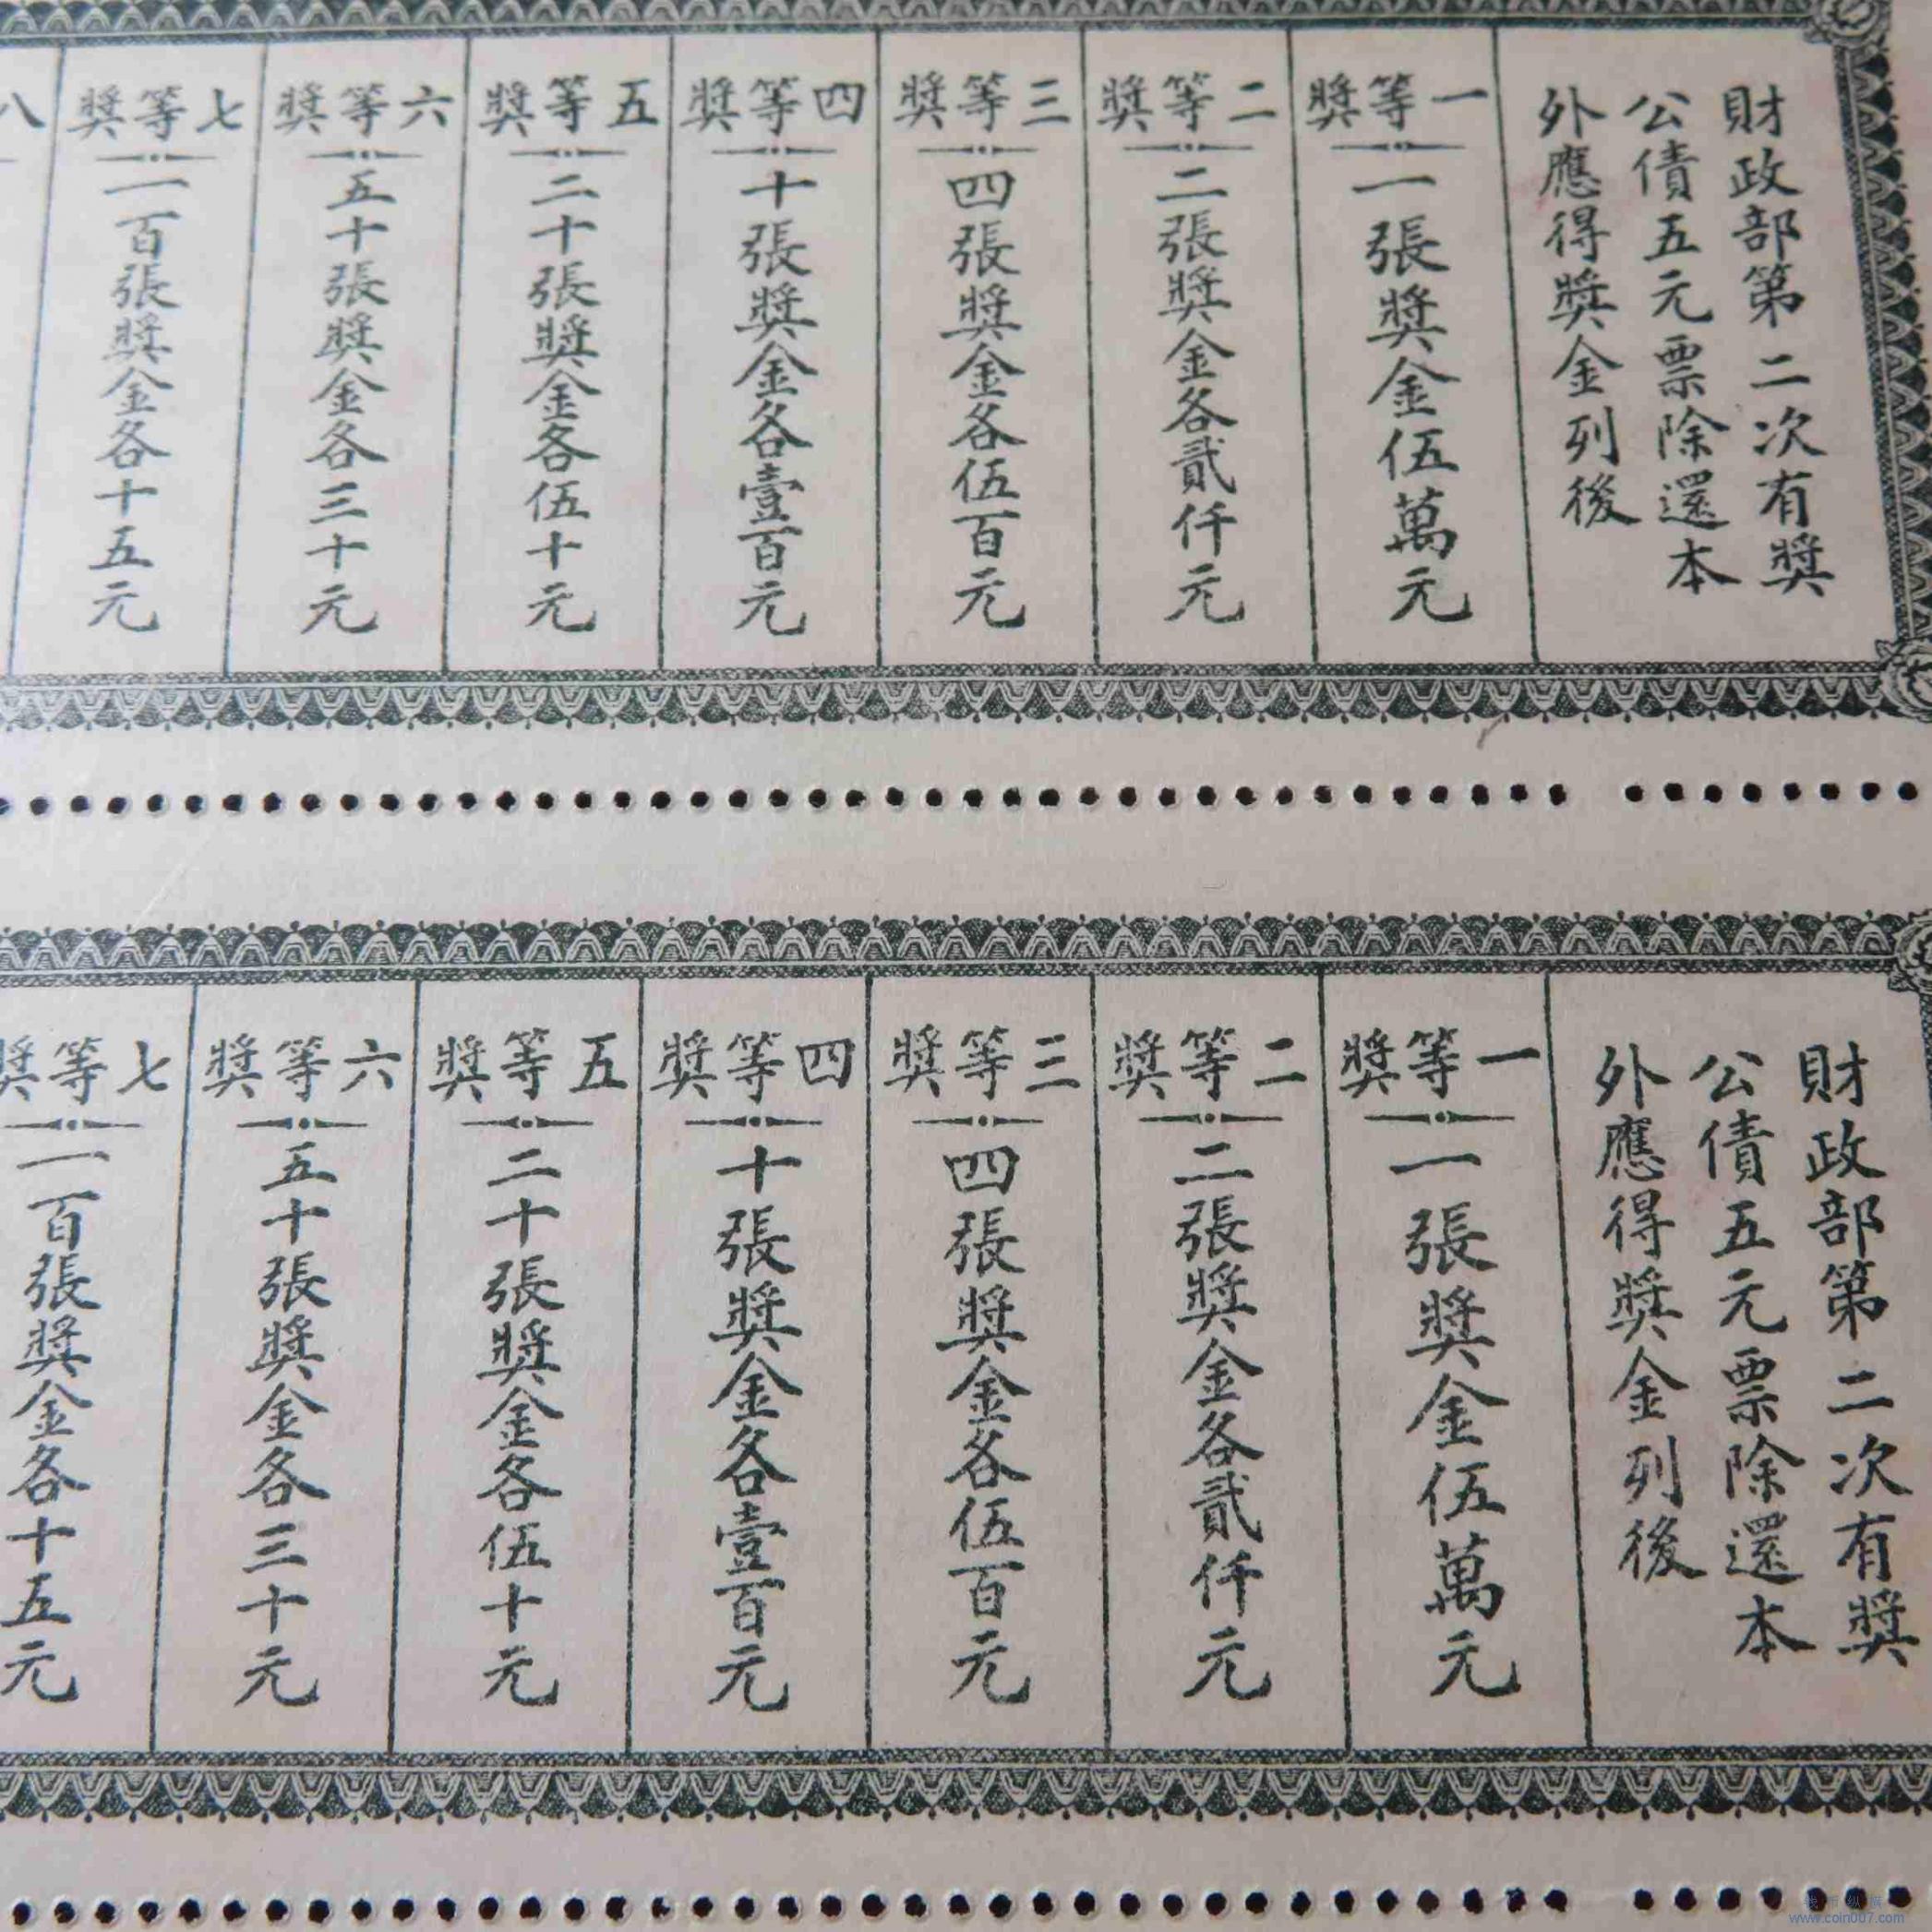 財政部第二次有獎
公債五元票除還本
外應得獎金列後
一等獎
一張獎金伍萬元
二等獎
二張獎金各貳仟元
三等獎
四張獎金各伍百元
四等獎
十張獎金各壹百元
五等獎
二十張獎金各伍十元
六等獎
五十張獎金各三十元
七等獎
一百張獎金各十五元
八
財政部第二次有獎
公債五元票除還本
外應得獎金列後
一等獎
一張獎金伍萬元
二等獎
二張獎金各貳仟元
三等獎
四張獎金各伍百元
四等獎
十張獎金各壹百元
五等獎
二十張獎金各伍十元
六等獎
五十張獎金各三十元
七等獎
一百張獎金各十五元
www.coin007.com